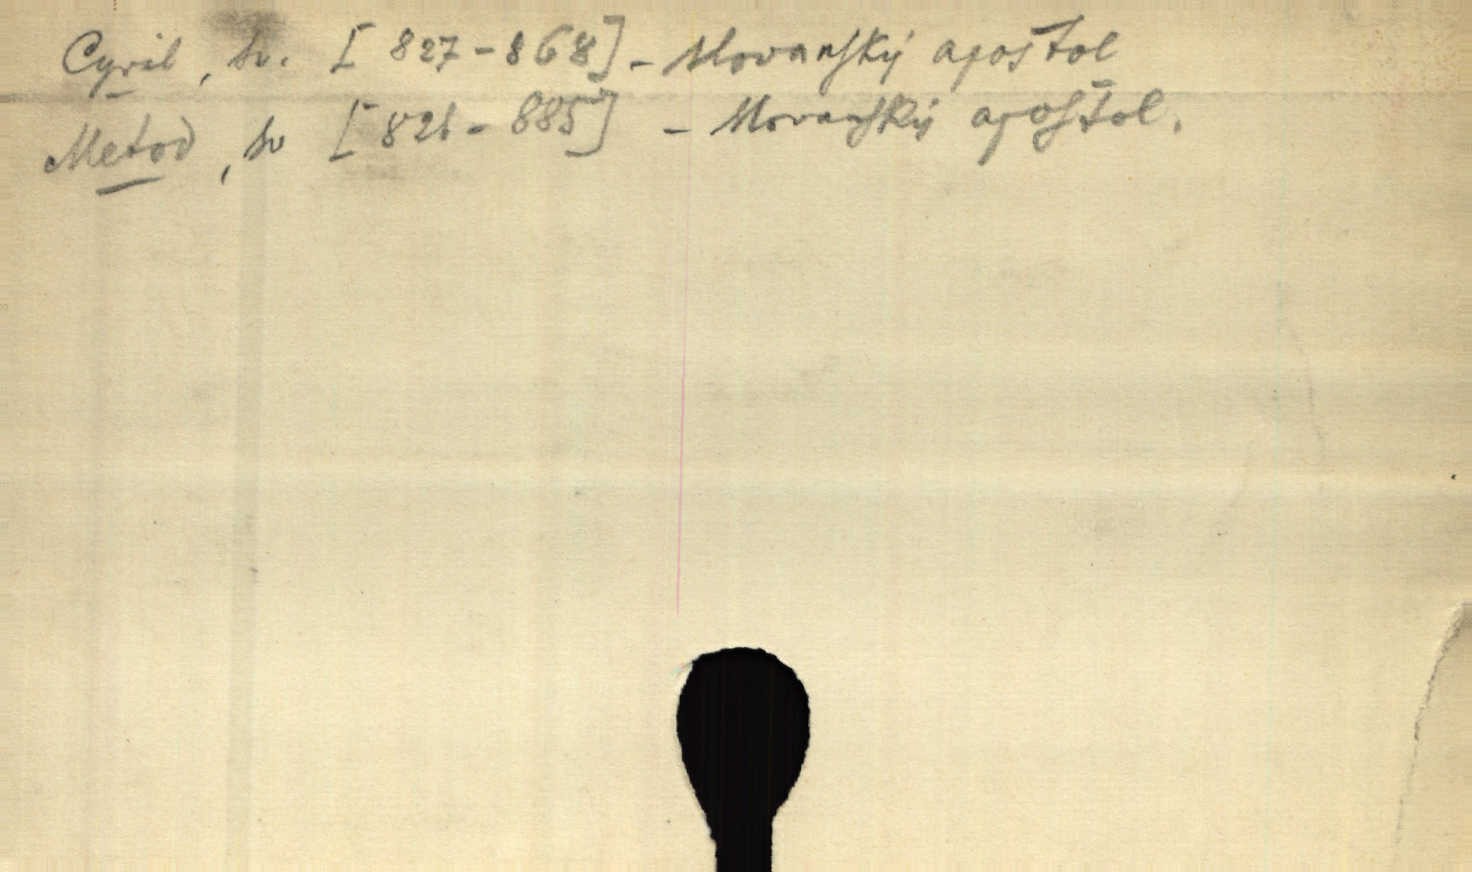 Cyril, sv. [827-868] - slovanský apoštol
Metod, sv [821-885] - slovanský apoštol.